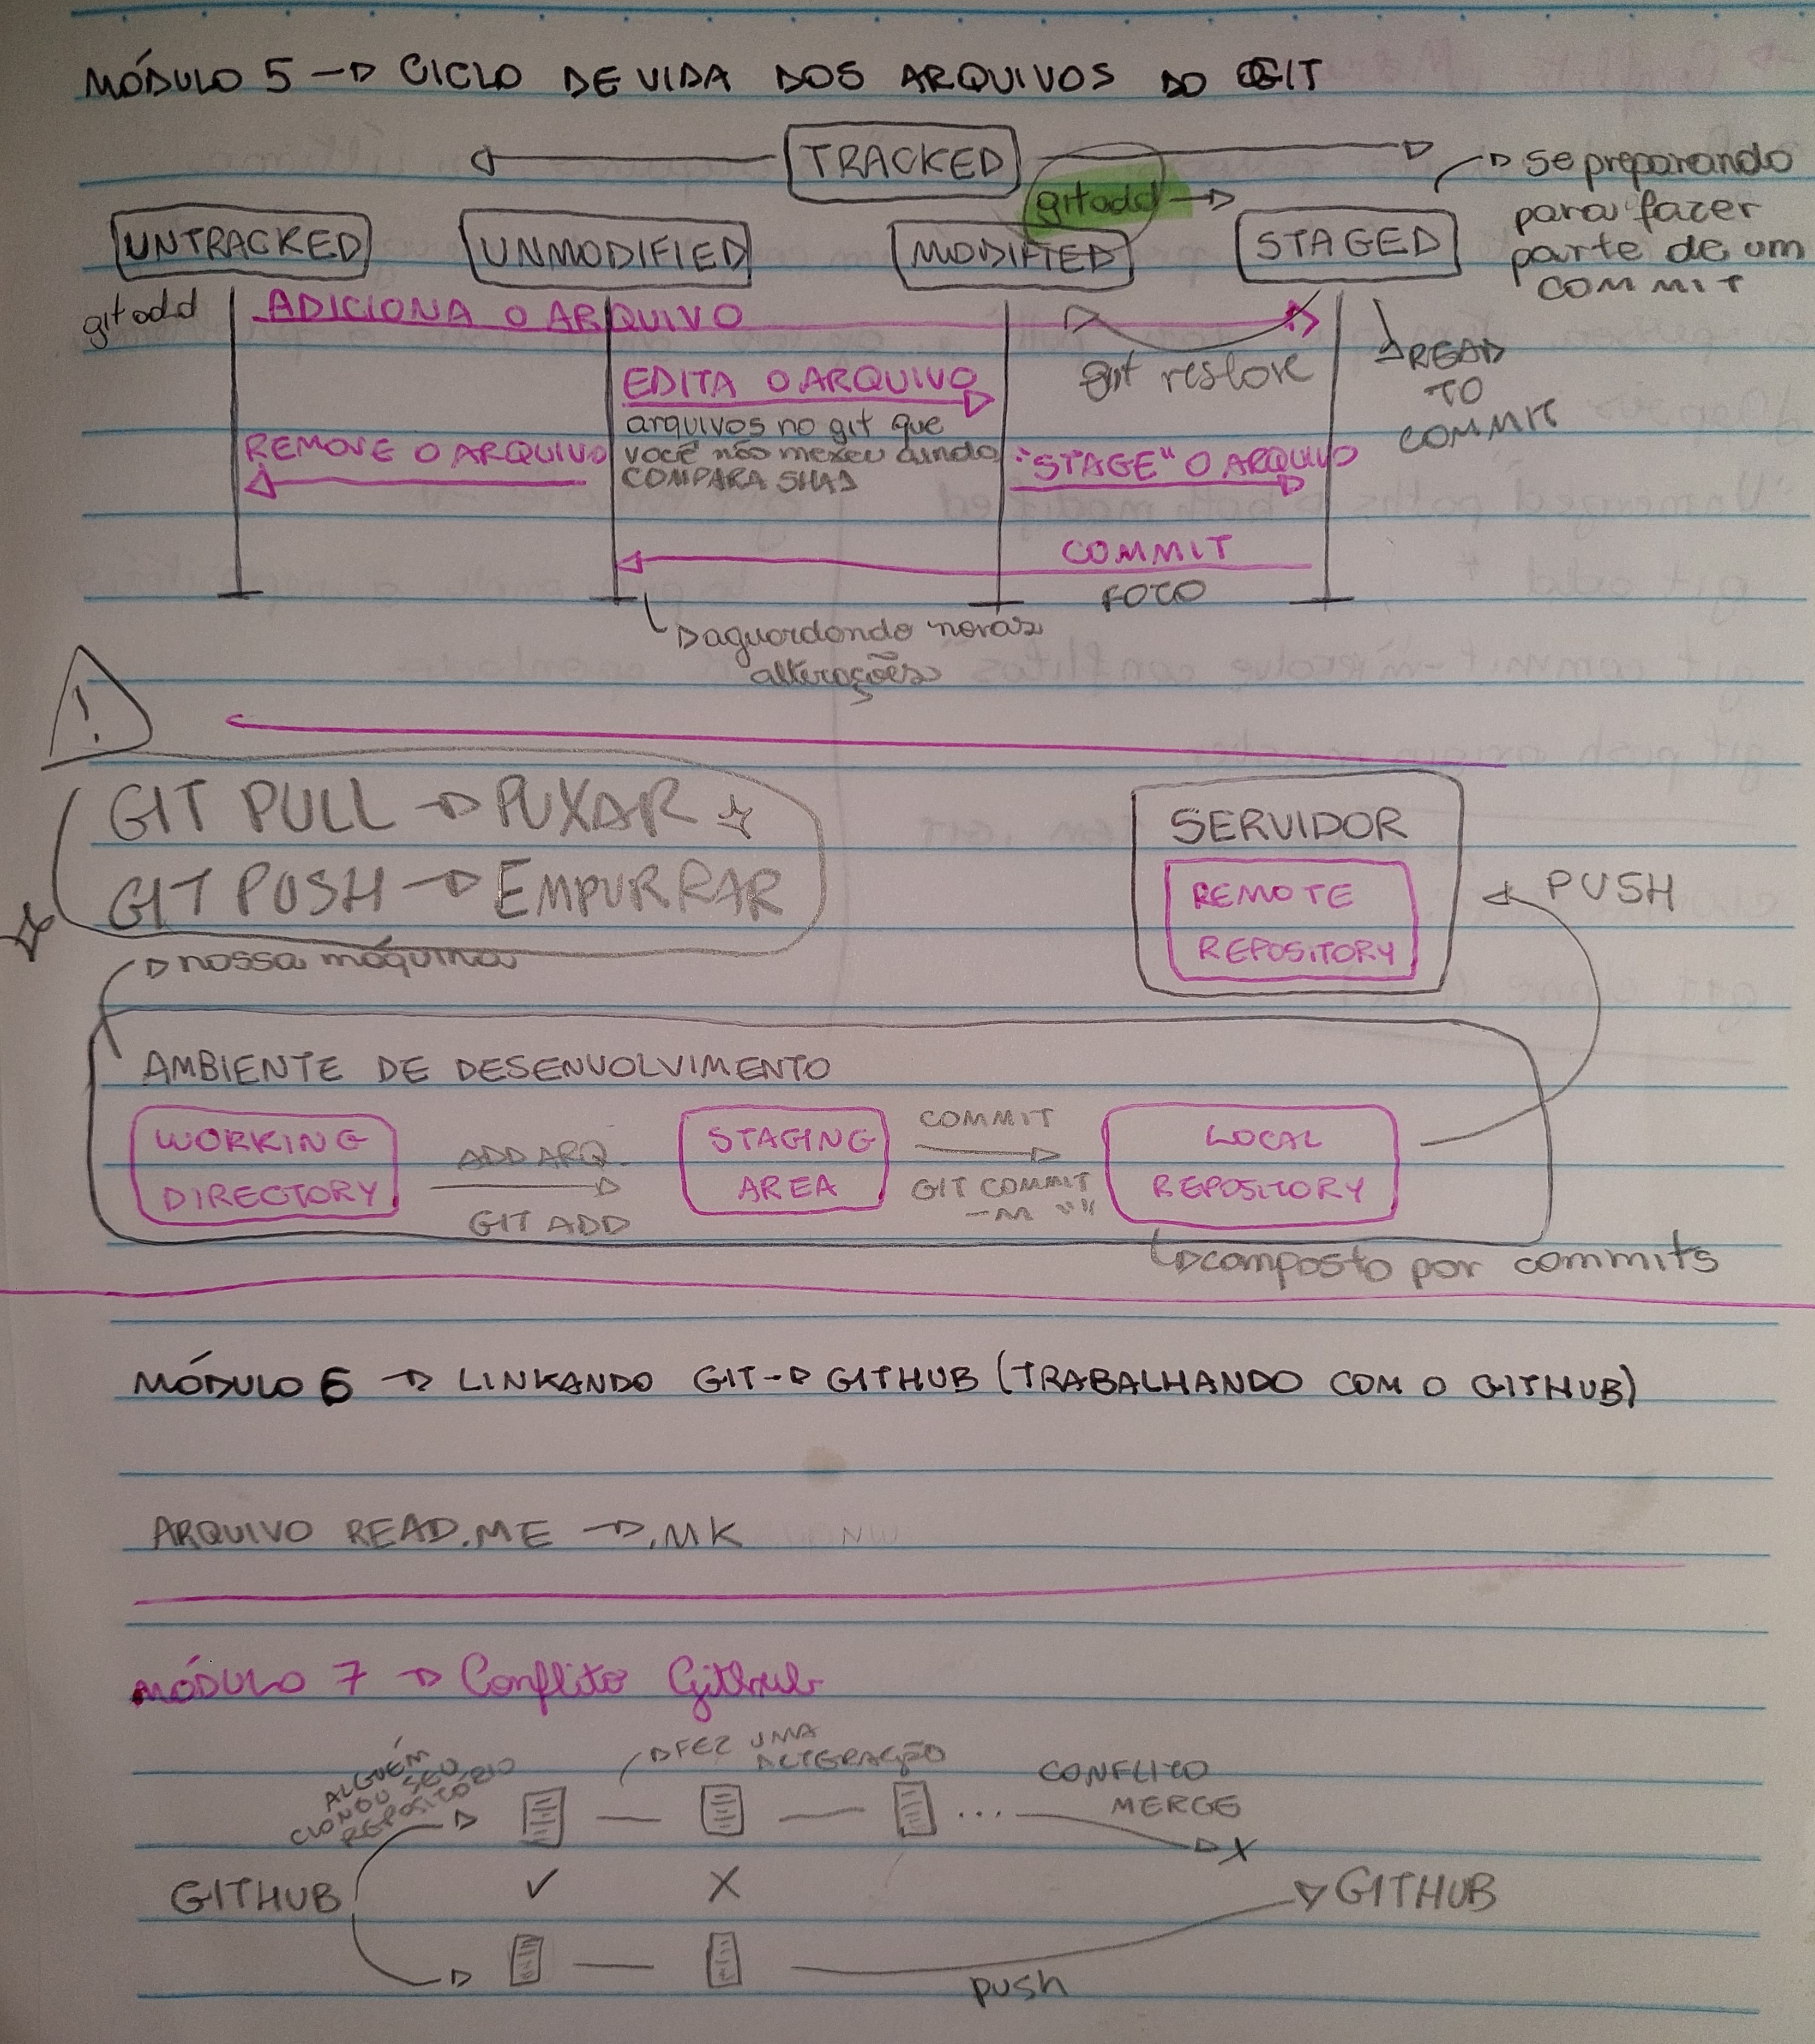 MÓDULO 5 → CICLO DE VIDA DOS ARQUIVOS DO GIT
TRACKED
git add →
→ se preparando
para fazer
parte de um
COMMIT
UNTRACKED UNMODIFIED MODIFIED STAGED
git add
ADICIONA O ARQUIVO
EDITA O ARQUIVO
git restore
READ
TO
COMMIT
arquivos no git que
você não mexeu ainda
COMPARA SHA1
REMOVE O ARQUIVO
"STAGE" O ARQUIVO
COMMIT
FOTO
aguardando novas
alterações
!
GIT PULL → PUXAR
GIT PUSH → EMPURRAR
SERVIDOR
REMOTE
REPOSITORY
PUSH
→ nossa máquina
AMBIENTE DE DESENVOLVIMENTO
WORKING
DIRECTORY
ADD ARQ.
GIT ADD
STAGING
AREA
COMMIT
GIT COMMIT
-M ""
LOCAL
REPOSITORY
→ composto por commits
MÓDULO 6 → LINKANDO GIT → GITHUB (TRABALHANDO COM O GITHUB)
ARQUIVO READ.ME → .MK
MÓDULO 7 → Conflito Github
ALGUÉM
CLONOU SEU
REPOSITÓRIO
→ FEZ UMA
ALTERAÇÃO
...
CONFLITO
MERGE
X
GITHUB
✓ X
GITHUB
push